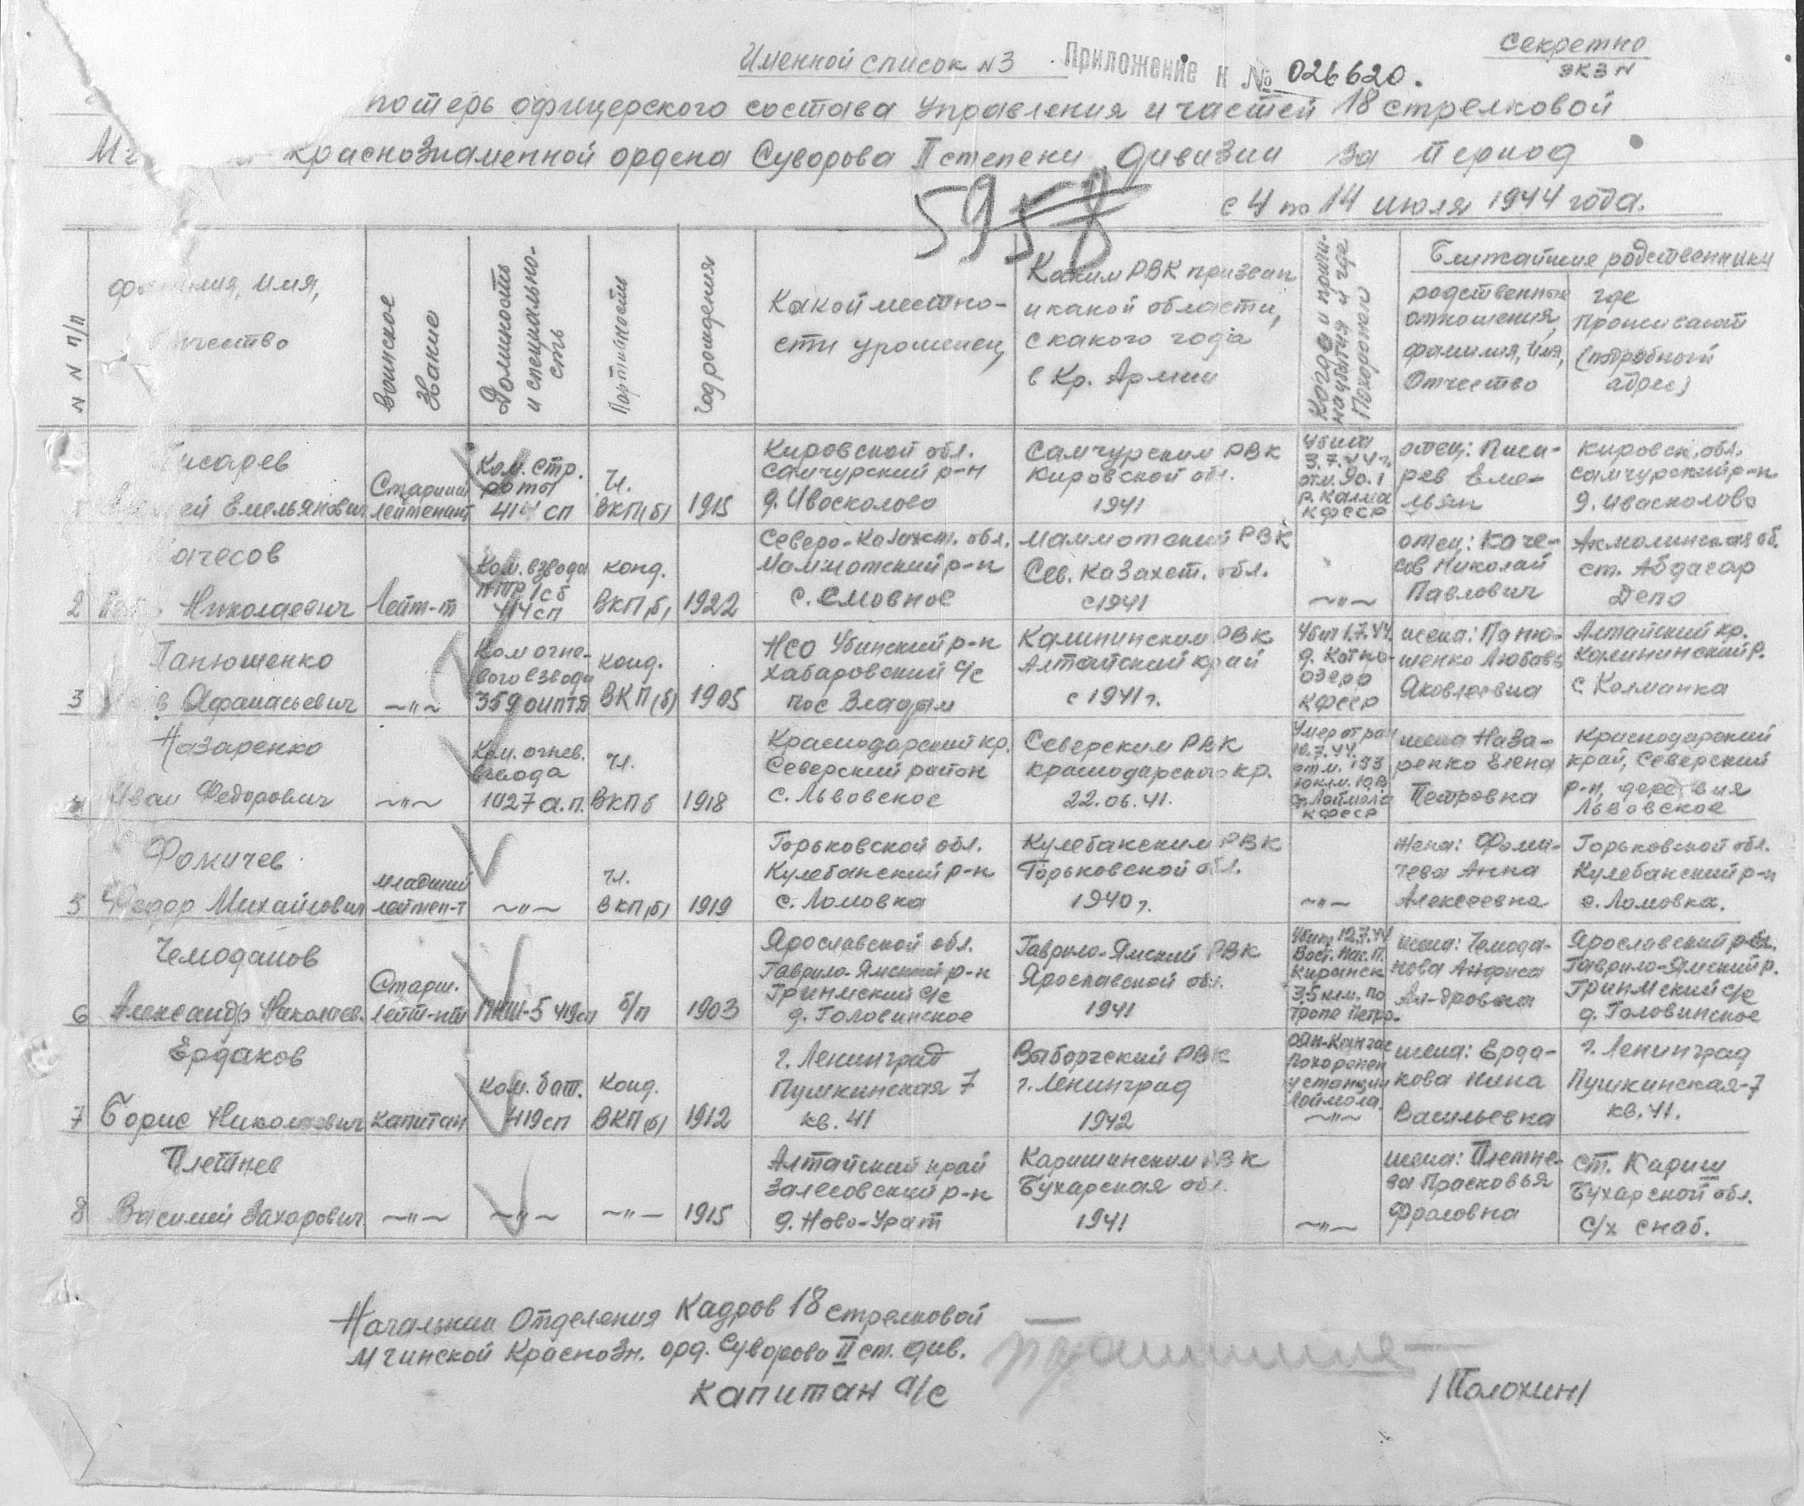 Секретно
экз N
Именной список №3 Приложение к № 026620.
потерь офицерского состава Управления и частей 18 стрелковой
Краснознаменной ордена Суворова II степени дивизии за период
с 4 по 14 июля 1944 года.
5958
N N п/п
милия, имя,
чество
Воинское
Звание
Должность
и специально-
сть
Партийность
Год рождения
Какой местно-
сти уроженец
Каким РВК призван
и какой области,
с какого года
в Кр. Армии
Когда и причи-
на убытия и где
Похоронен
Ближайшие родственники
родственные
отношения,
фамилия, имя,
Отчество
где
Проживают
(подробный
адрес)
исарев
ей Емельянович
Старший
лейтенант
Ком. стр.
роты
414 сп
Чл.
ВКП(б)
1915
Кировской обл.
Санчурский р-н
д. Ивосколово
Санчурским РВК
Кировской обл.
1941
Убит
3.7.44 г.
отм. 90.1
КФССР
отец: Писа-
рев Еме-
льян
Кировск. обл.
Санчурский р-н
д. Ивасколово
2
ачесов
Николаевич
Лейт-т
Ком. взвода
ПТР 1сб
414 сп
конд.
ВКП(б)
1922
Северо-Казахст. обл.
Мамлютский р-н
с.
Мамлютский РВК
Сев. Казахст. обл.
с 1941
~"~
отец: Каче-
сов Николай
Павлович
Акмолинская об.
ст.
Депо
3
Панюшенко
Афанасьевич
~"~
Ком огне-
вого взвода
359 оиптд
конд.
ВКП(б)
1905
НСО Убинский р-н
Хабаровский с/с
пос
Калининским РВК
Алтайский край
с 1941 г.
Убит 1.7.44.
д.
озеро
КФССР
жена: Паню-
шенко Любовь
Яковлевна
Алтайский кр.
Калининский р.
с Калманка
4
Назаренко
Иван Федорович
~"~
Ком. огнев.
взвода
1027 а.п.
чл.
ВКП б
1918
Краснодарский кр.
Северский район
с. Львовское
Северским РВК
Краснодарского кр.
22.06.41.
Умер от ран
10.7.44.
Лоймола
КФССР
жена Наза-
ренко Елена
Петровка
Краснодарский
край, Северский
р-н, деревня
Львовское
5
Фомичев
Федор Михайлович
младший
лейтен-т
~"~
чл.
ВКП(б)
1919
Горьковской обл.
Кулебанский р-н
с. Ломовка
Кулебакским РВК
Горьковской обл.
1940 г.
~"~
Жена: Фоми-
чева Анна
Алексеевна
Горьковской обл.
Кулебанский р-н
с. Ломовка.
6
Чемоданов
Александр Николаев.
Старш.
лейт-нт
ПНШ-5 419сп
б/п
1903
Ярославской обл.
Гаврило-Ямский р-н
д. Головинское
Гаврило-Ямский РВК
Ярославской обл.
1941
Убит 12.7.44
Вост. нас. п.
3,5 клм. по
тропе Петро-
жена: Чемода-
нова Анфиса
Ал-дровна
Гаврило-Ямский р.
д. Головинское
7
Ердаков
Борис Николаевич
капитан
Ком. бат.
419 сп
конд.
ВКП(б)
1912
г. Ленинград
Пушкинская 7
кв. 41
Выборгский РВК
г. Ленинград
1942
Похоронен
у станции
Лоймола.
~"~
жена: Ерда-
кова Нина
Васильевна
г. Ленинград
Пушкинская-7
кв. 41.
8
Плетнев
Василий Захарович
~"~
~"~
~"~
1915
Алтайский край
Залесовский р-н
д. Ново-Урат
Каришинским РВК
Бухарская обл.
1941
~"~
жена: Плетне-
ва Прасковья
Фроловна
ст. Кариш
Бухарской обл.
с/х снаб.
Начальник Отделения Кадров 18 стрелковой
Мгинской Краснозн. орд. Суворова II ст. див.
Капитан а/с
/Полохин/